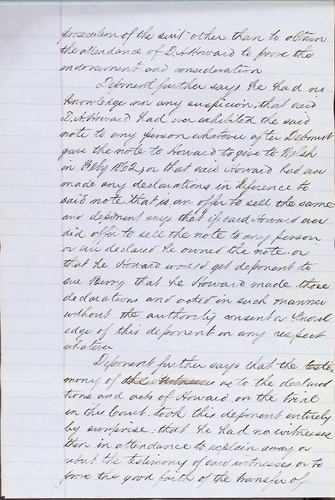 prosecution of the suit other than to obtain
the attendance of D. A Howard to prove the
endorsement and consideration
Deponent further says he had no
knowledge nor any suspicion that said
D. A Howard had ever exhibited the said
note to any person whatever after Deponent
gave the note to Howard to give to Welsh
in Feby 1862, or that said Howard had ever
made any declarations in reference to
said note that is an offer to sell the same
and deponent says that if said Howard ever
did offer to sell the note to any person
or ever declared he owned the note or
that he Howard would get deponent to
sue Henry that he Howard made those
declarations and acted in such manner
without the authority consent or knowl
edge of this deponent in any respect
whatever
Deponent further says that the testi
mony of the witnesses as to the declara
tions and acts of Howard, on the trial
in this Court, took this deponent entirely
by surprise, that he had no witnesses
then in attendance to explain away or
rebut the testimony of said witnesses or to
prove the good faith of the transfer of